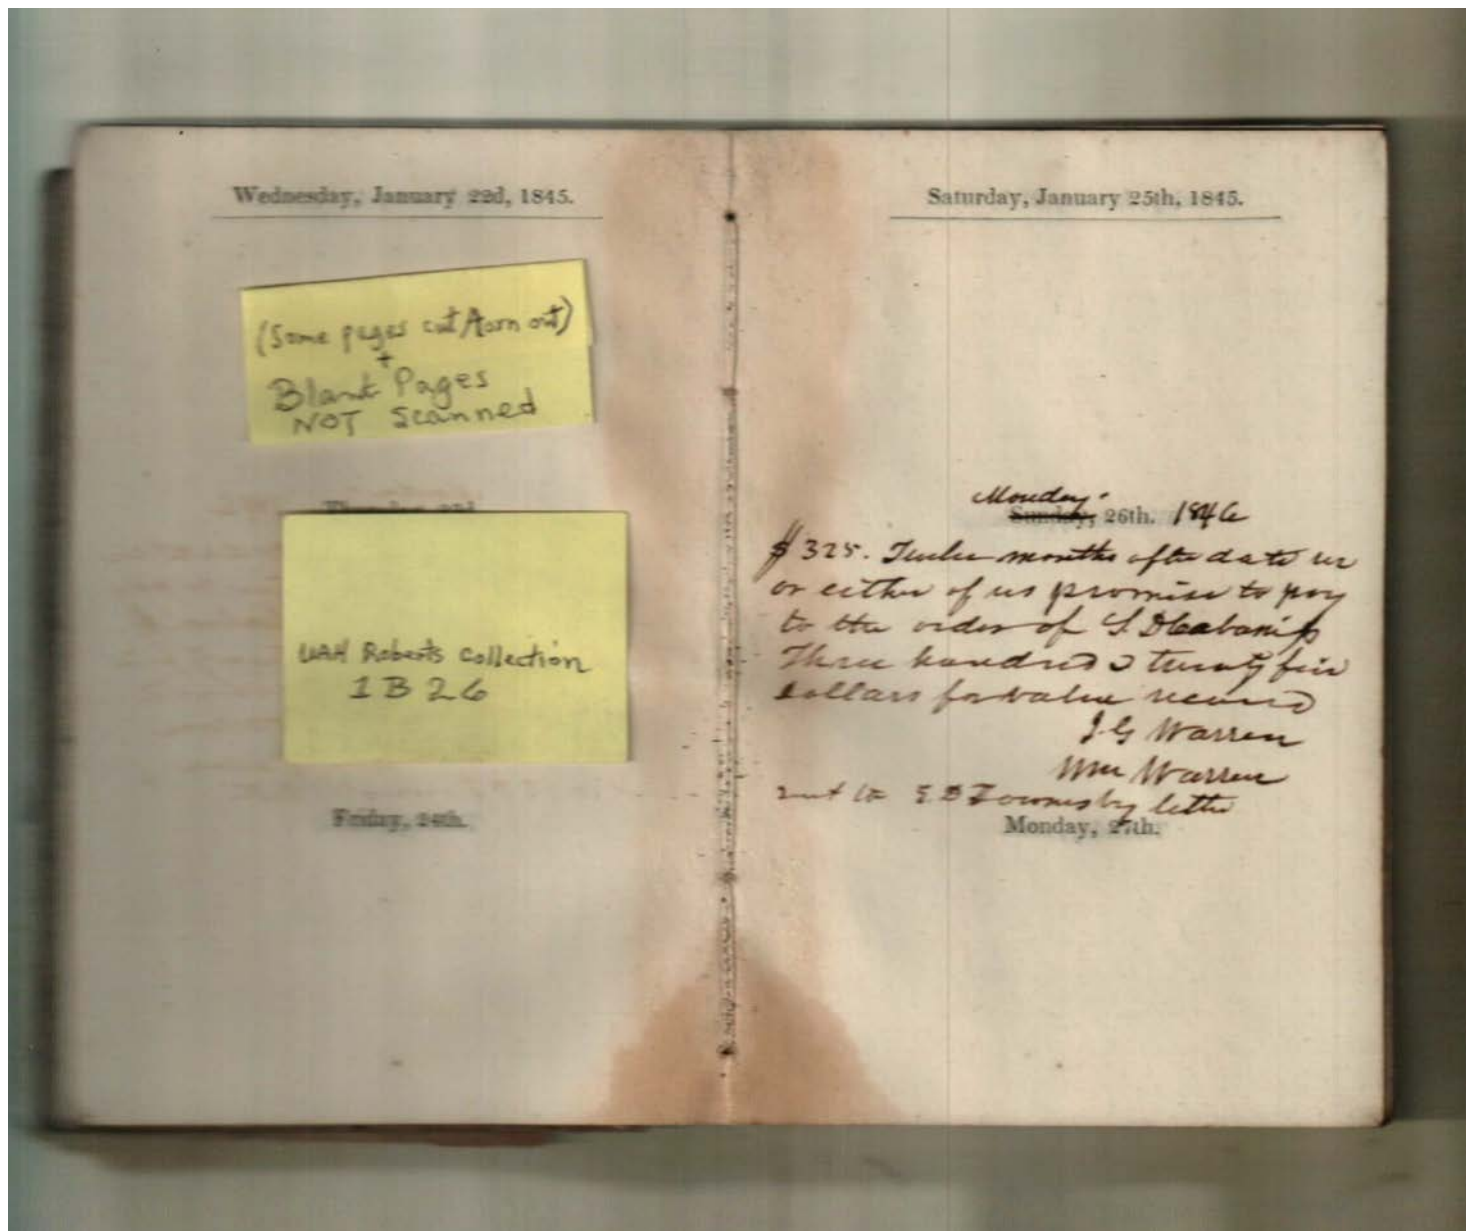 Wednesday, January 22d, 1845.
(Some pages cut/torn out)
+
Blank Pages
NOT Scanned
UAH Roberts collection
1B26
Friday, 24th.
Saturday, January 25th, 1845.
Monday
Sunday, 26th. 1846
$325. Twelve months after date we
or either of us promise to pay
to the order of S. D. Cabaniss
Three hundred & twenty five
dollars for value received
J G Warren
Wm Warren
sent to E D Townes by letter
Monday, 27th.